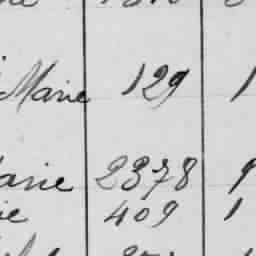 Marie 129 1
arie 2378 9
ie 409 1